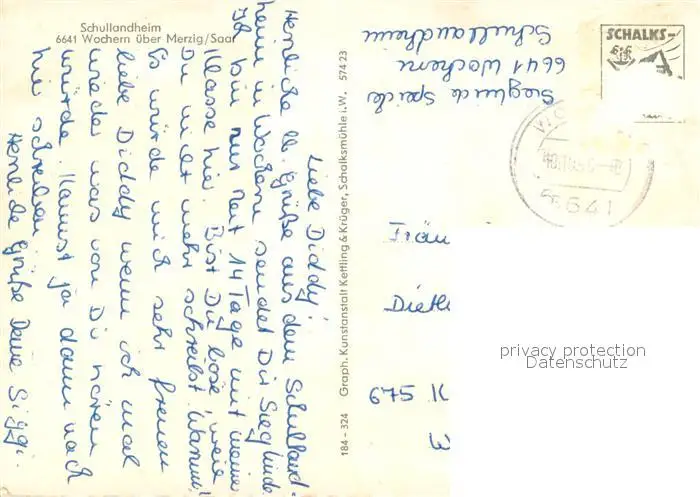 Schullandheim
6641 Wochern über Merzig/Saar
Liebe Diddy!
Herzliche lb. Grüße aus dem Schulland-
heim in Wochern sendet Dir Sieglinde.
Ich bin nur seit 14 Tage mit meine
Klasse hier. Bist Du böse, weil
Du nicht mehr schreibst. Warum!
Es würde mich sehr freuen
liebe Diddy wenn ich mal
wieder was von Dir hören
würde. Kannst ja dann nach
hier schreiben
Herzliche Grüße Deine Siggi.
184 - 324 Graph. Kunstanstalt Kettling & Krüger, Schalksmühle i. W. 574 23
Sieglinde
6641 Wochern
Schullandheim
SCHALKS-
6641
Fräu
Dieth
675 K
privacy protection
Datenschutz